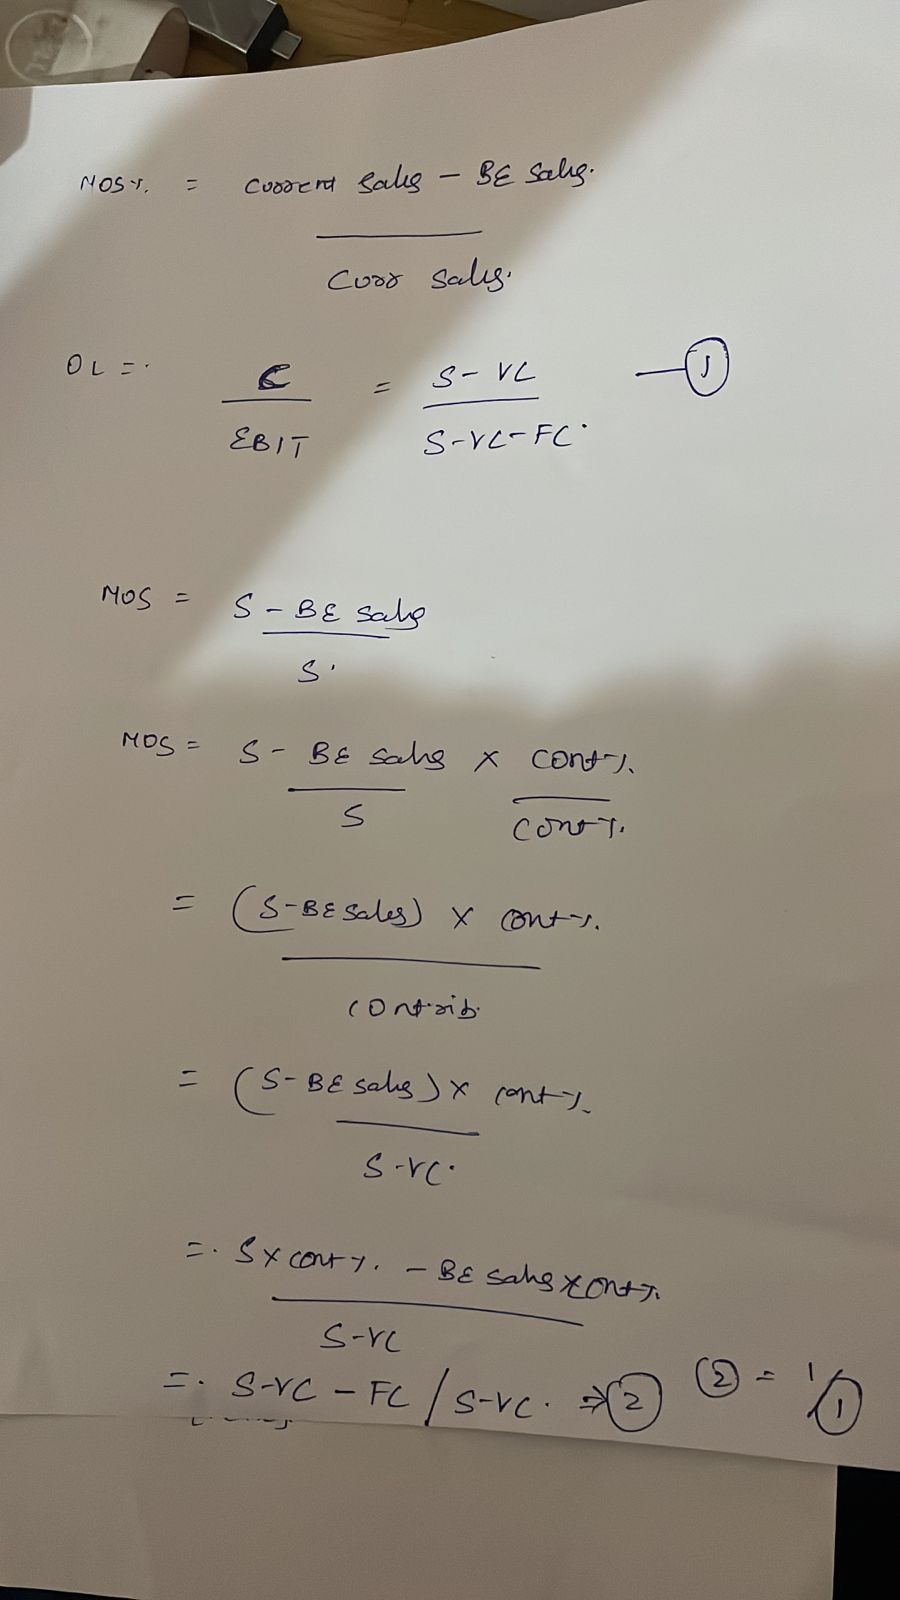 MOS%. = Current Sales - BE Sales.
Curr Sales.
OL = C / EBIT = S - VC / S-VC-FC — 1
MOS = S - BE Sales / S
MOS = S - BE Sales / S x Cont%. / Cont%.
= (S-BE Sales) x Cont%.
Contrib.
= (S-BE Sales) x Cont%.
S-VC.
= S x Cont%. - BE Sales x Cont%.
S-VC
= S-VC - FC / S-VC. ⇒ 2   2 = 1/1